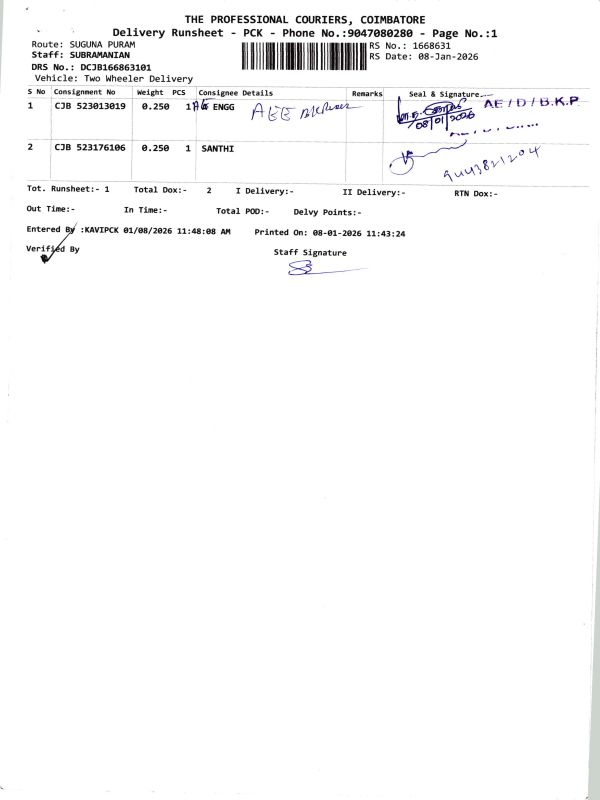 THE PROFESSIONAL COURIERS, COIMBATORE
Delivery Runsheet - PCK - Phone No.:9047080280 - Page No.:1
Route: SUGUNA PURAM
RS No.: 1668631
Staff: SUBRAMANIAN
RS Date: 08-Jan-2026
DRS No.: DCJB166863101
Vehicle: Two Wheeler Delivery
S No Consignment No Weight PCS Consignee Details Remarks Seal & Signature
1 CJB 523013019 0.250 1 ENGG AEE AE / D / B.K.P
08/01/2026
2 CJB 523176106 0.250 1 SANTHI
9443821204
Tot. Runsheet:- 1 Total Dox:- 2 I Delivery:- II Delivery:- RTN Dox:-
Out Time:- In Time:- Total POD:- Delvy Points:-
Entered By :KAVIPCK 01/08/2026 11:48:08 AM Printed On: 08-01-2026 11:43:24
Verified By Staff Signature